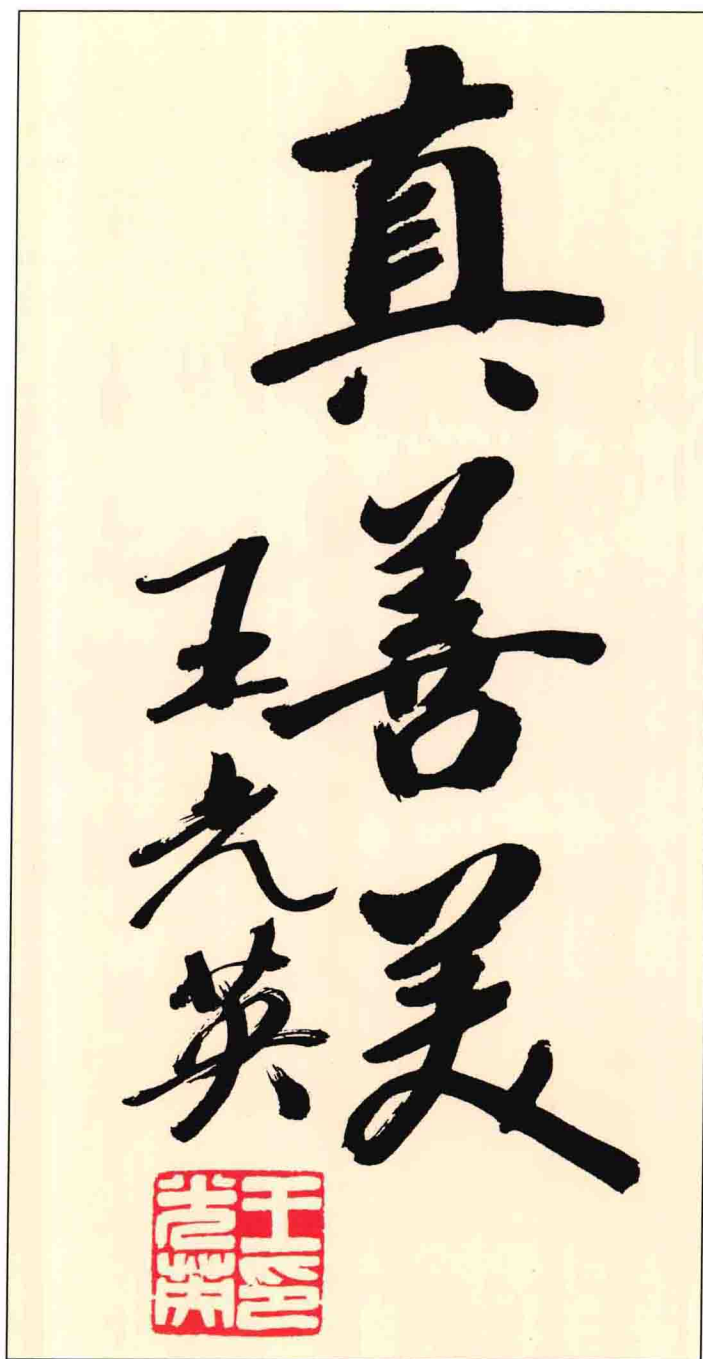 真善美
王光英
王印
光英